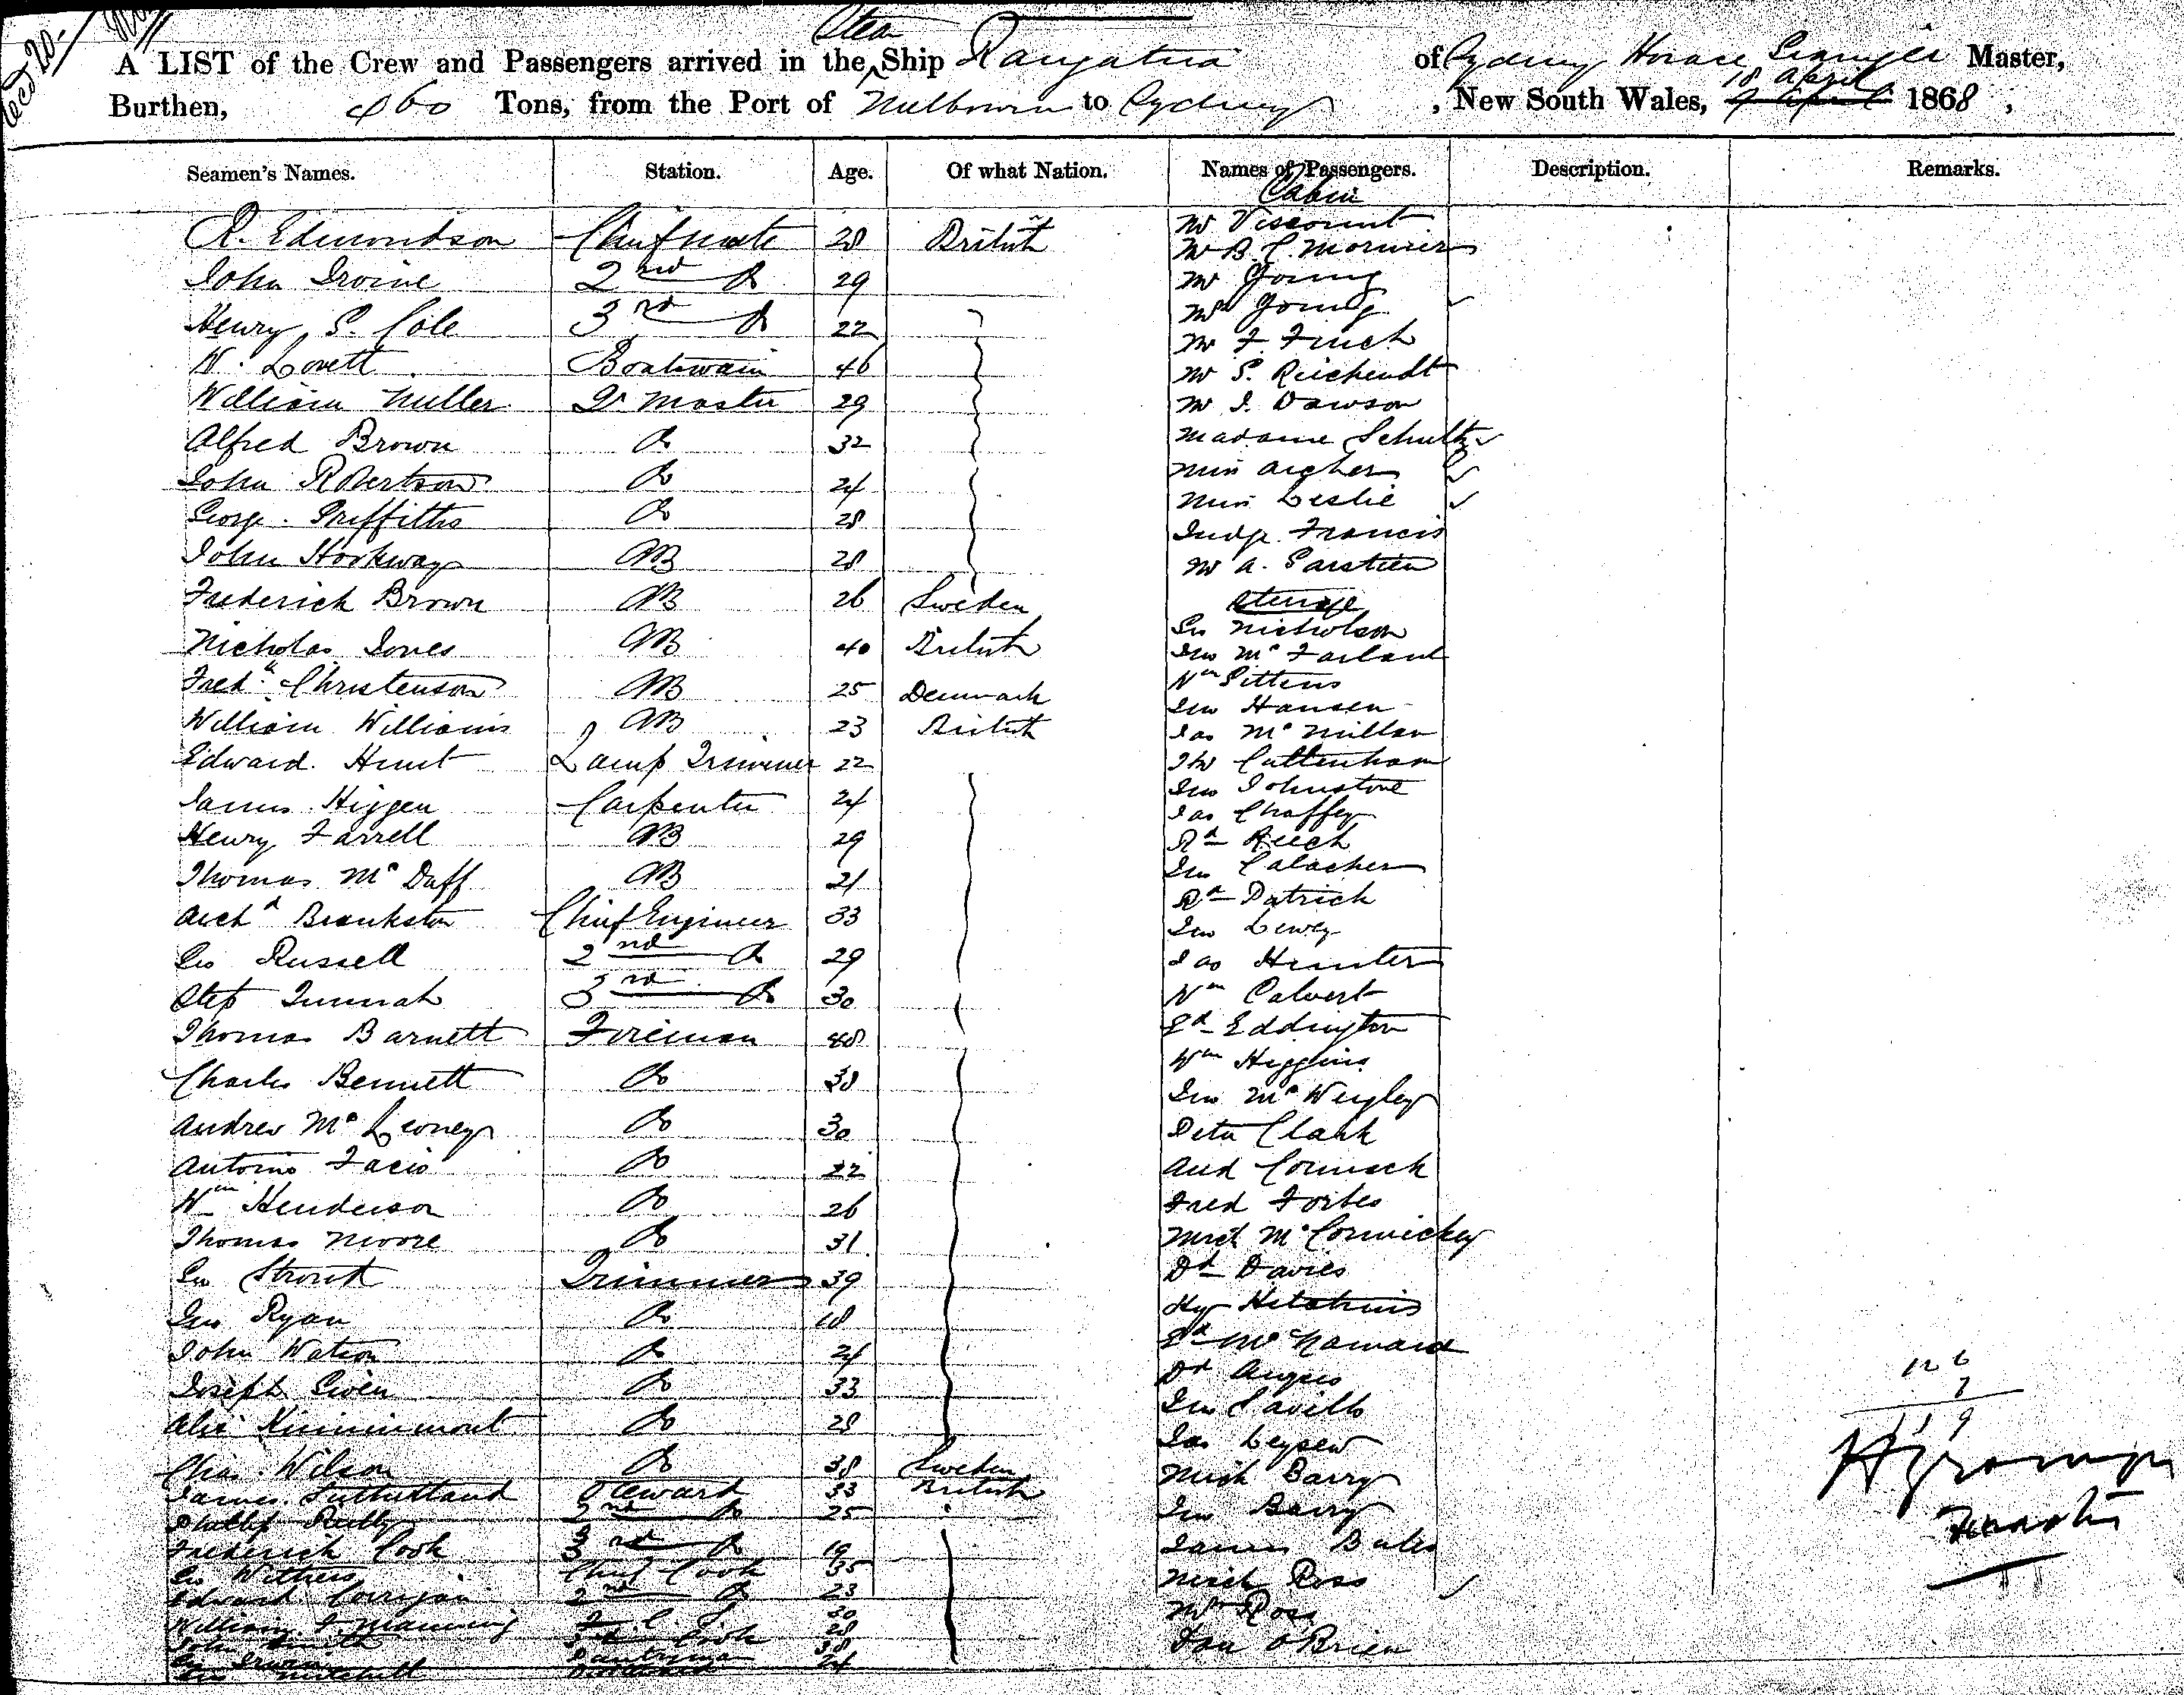 Steam
A LIST of the Crew and Passengers arrived in the Ship Rangatira of Sydney Horace Master,
Burthen, 460 Tons, from the Port of Melbourne to Sydney, New South Wales, 18 April 1868,
Seamen's Names. Station. Age. Of what Nation. Names of Passengers. Description. Remarks.
Cabin
R. Edmondson Chief mate 28 British
John Irvine 2nd Do 29
Henry S. Cole 3rd Do 22
W. Lovett Boatswain 46
William Miller Qr Master 29
Alfred Brown Do 32
John Robertson Do 24
George Griffiths Do 28
John Hookway AB 28
Frederick Brown AB 26 Sweden
Nicholas Jones AB 40 British
Fredk Christenson AB 25 Denmark
William Williams AB 23 British
Edward Hunt Lamp Trimmer 22
James Higgen Carpenter 24
Henry Farrell AB 29
Thomas Mc Duff AB 21
Archd Brankston Chief Engineer 33
Geo Russell 2nd Do 29
Step 3rd Do 30
Thomas Barnett Fireman 48
Charles Bennett Do 38
Andrew Mc Do 30
Antonio Facio Do 22
Wm Henderson Do 26
Thomas Moore Do 31
Geo Stroud Trimmer 39
Jno Ryan Do 18
John Watson Do 24
Joseph Do 33
Alex Kinninmont Do 28
Chas. Wilson Do 38 Sweden
James Sutherland Steward 33 British
Phillip Reilly 2nd Do 25
Frederick Cook 3rd Do 19
Geo Withers Chief Cook 35
Edward Corrigan 2nd Do 23
William J. Manning 30
John Smith Cook 28
Geo Irwin Pantryman 38
Jno Mitchell 24
Mr Viscount
Mr B. C.
Mr Young
Mrs Young
Mr F. Finch
Mr S.
Mr J. Dawson
Madame Schultz
Miss Archer
Miss Leslie
Judge Francis
Mr A.
Steerage
Geo Nicholson
Jno Mc Farland
Wm Pittens
Jno Hansen
Jas Mc Millan
Cuttenham
Jno Johnstone
Jas Chaffey
Rd
Jno Calacher
Rd Patrick
Jno Lewey
Jas Hunter
Wm Calvert
Ed Eddington
Wm Higgins
Jno Mc
Peter Clark
And Cormack
Fred Forbes
Mich Mc Cormickey
Dd Davies
Hy
Ed Mc Namara
Dd Angus
Jno Savill
Jas
Mich Barry
Jno Barry
James Bates
Mich Ross
Mrs Ross
Dan O'Brien
126
7
119